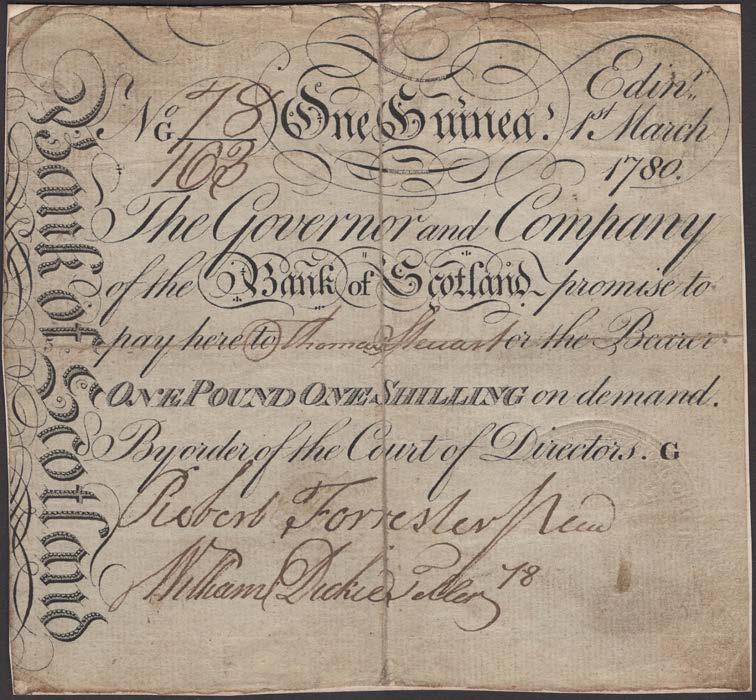 Bank of Scotland
No G 78/163 One Guinea. Edinr. 1st March 1780.
The Governor and Company
of the Bank of Scotland promise to
pay here to Thomas Steuart or the Bearer
ONE POUND ONE SHILLING on demand.
By order of the Court of Directors. G
Robert Forrester
William Dickie Teller 78